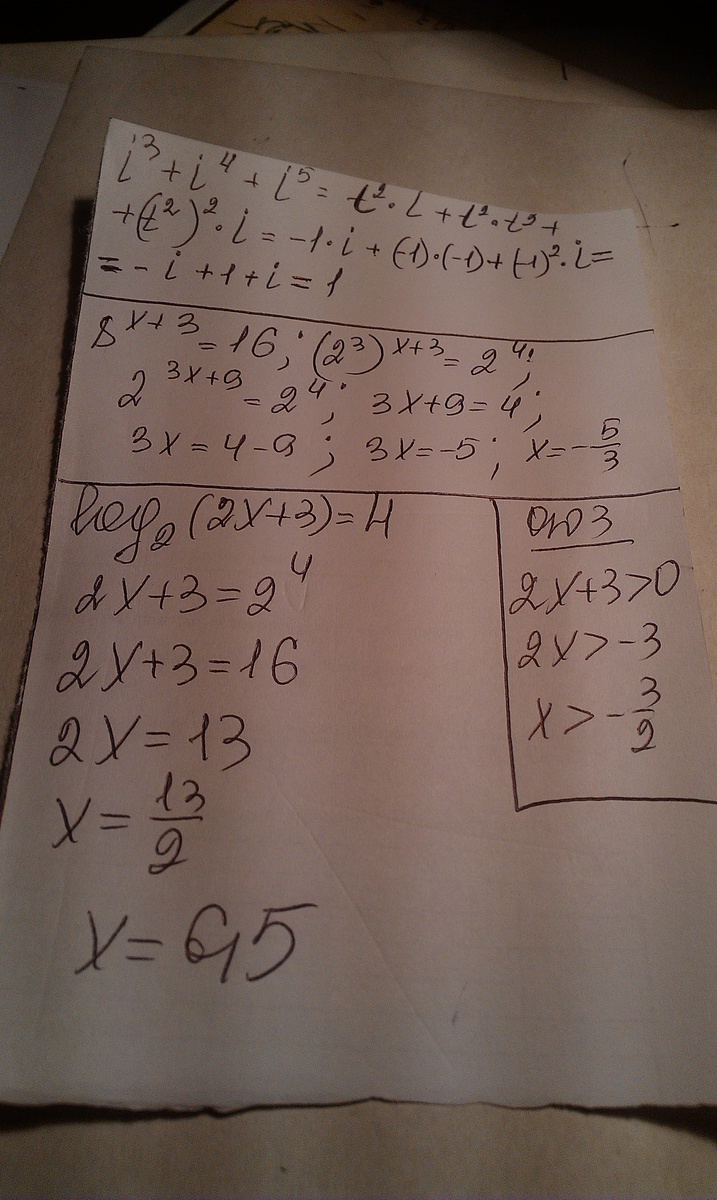 i³ + i⁴ + i⁵ = i²·i + i²·i² +
+ (i²)²·i = -1·i + (-1)·(-1) + (-1)²·i =
= -i + 1 + i = 1
8^(x+3) = 16; (2³)^(x+3) = 2⁴;
2^(3x+9) = 2⁴; 3x+9=4;
3x=4-9; 3x=-5; x=-5/3
log₂(2x+3)=4
2x+3=2⁴
2x+3=16
2x=13
x=13/2
x=6,5
ОДЗ
2x+3>0
2x>-3
x>-3/2